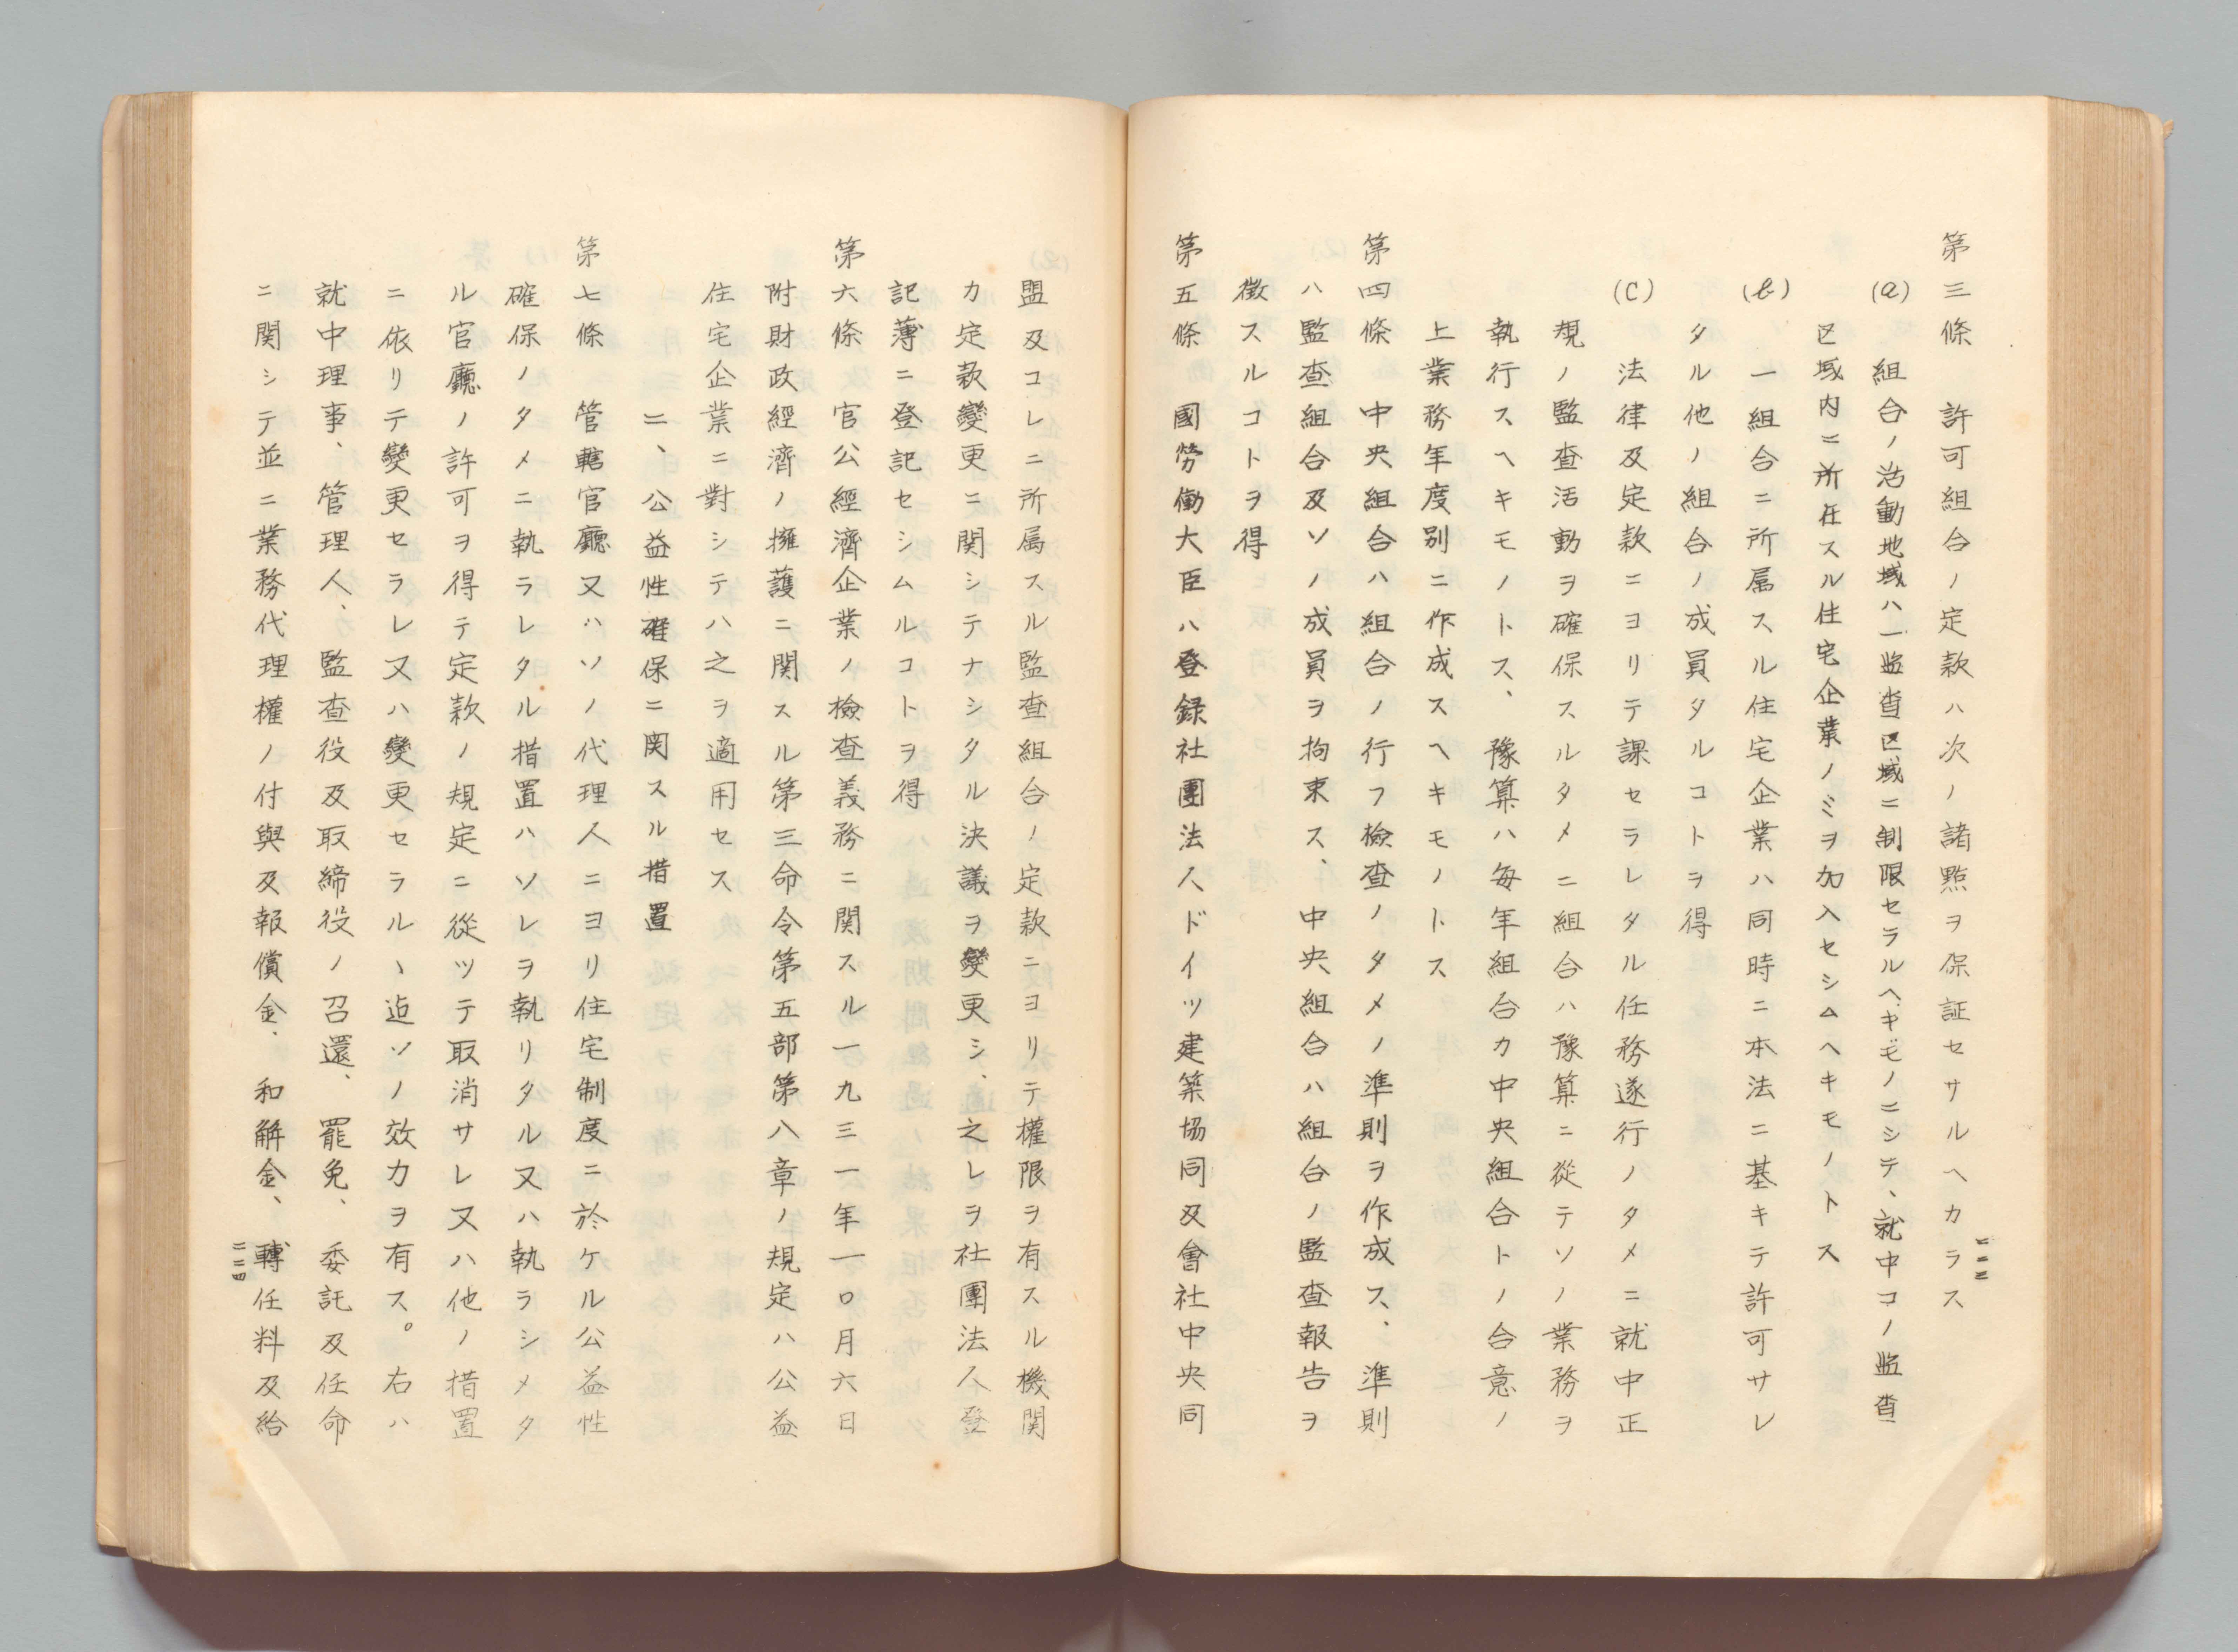 第三條　許可組合ノ定款ハ次ノ諸點ヲ保証セサルヘカラス
(a)　組合ノ活動地域ハ一监查区域ニ制限セラルヘキモノニシテ、就中コノ监查
区域内ニ所在スル住宅企業ノミヲ加入セシムヘキモノトス
(b)　一組合ニ所属スル住宅企業ハ同時ニ本法ニ基キテ許可サレ
タル他ノ組合ノ成員タルコトヲ得
(c)　法律及定款ニヨリテ課セラレタル任務遂行ノタメニ就中正
規ノ監查活動ヲ確保スルタメニ組合ハ豫算ニ從テソノ業務ヲ
執行スヘキモノトス、豫算ハ毎年組合カ中央組合トノ合意ノ
上業務年度別ニ作成スヘキモノトス
第四條　中央組合ハ組合ノ行フ檢查ノタメノ準則ヲ作成ス、準則
ハ監查組合及ソノ成員ヲ拘束ス、中央組合ハ組合ノ監查報告ヲ
徴スルコトヲ得
第五條　國勞働大臣ハ登録社團法人ドイツ建築協同及會社中央同
二二三
盟及コレニ所属スル監查組合ノ定款ニヨリテ權限ヲ有スル機関
カ定款變更ニ関シテナシタル決議ヲ變更シ、之レヲ社團法人登
記薄ニ登記セシムルコトヲ得
第六條　官公經濟企業ノ檢查義務ニ関スル一九三一年一〇月六日
附財政經濟ノ擁護ニ関スル第三命令第五部第八章ノ規定ハ公益
住宅企業ニ對シテハ之ヲ適用セス
二、公益性確保ニ関スル措置
第七條　管轄官廳又ハソノ代理人ニヨリ住宅制度ニ於ケル公益性
確保ノタメニ執ラレタル措置ハソレヲ執リタル又ハ執ラシメタ
ル官廳ノ許可ヲ得テ定款ノ規定ニ從ツテ取消サレ又ハ他ノ措置
ニ依リテ變更セラレ又ハ變更セラルヽ迄ソノ效力ヲ有ス。右ハ
就中理事、管理人、監查役及取締役ノ召還、罷免、委託及任命
ニ関シテ並ニ業務代理權ノ付與及報償金、和解金、轉任料及給
二二四